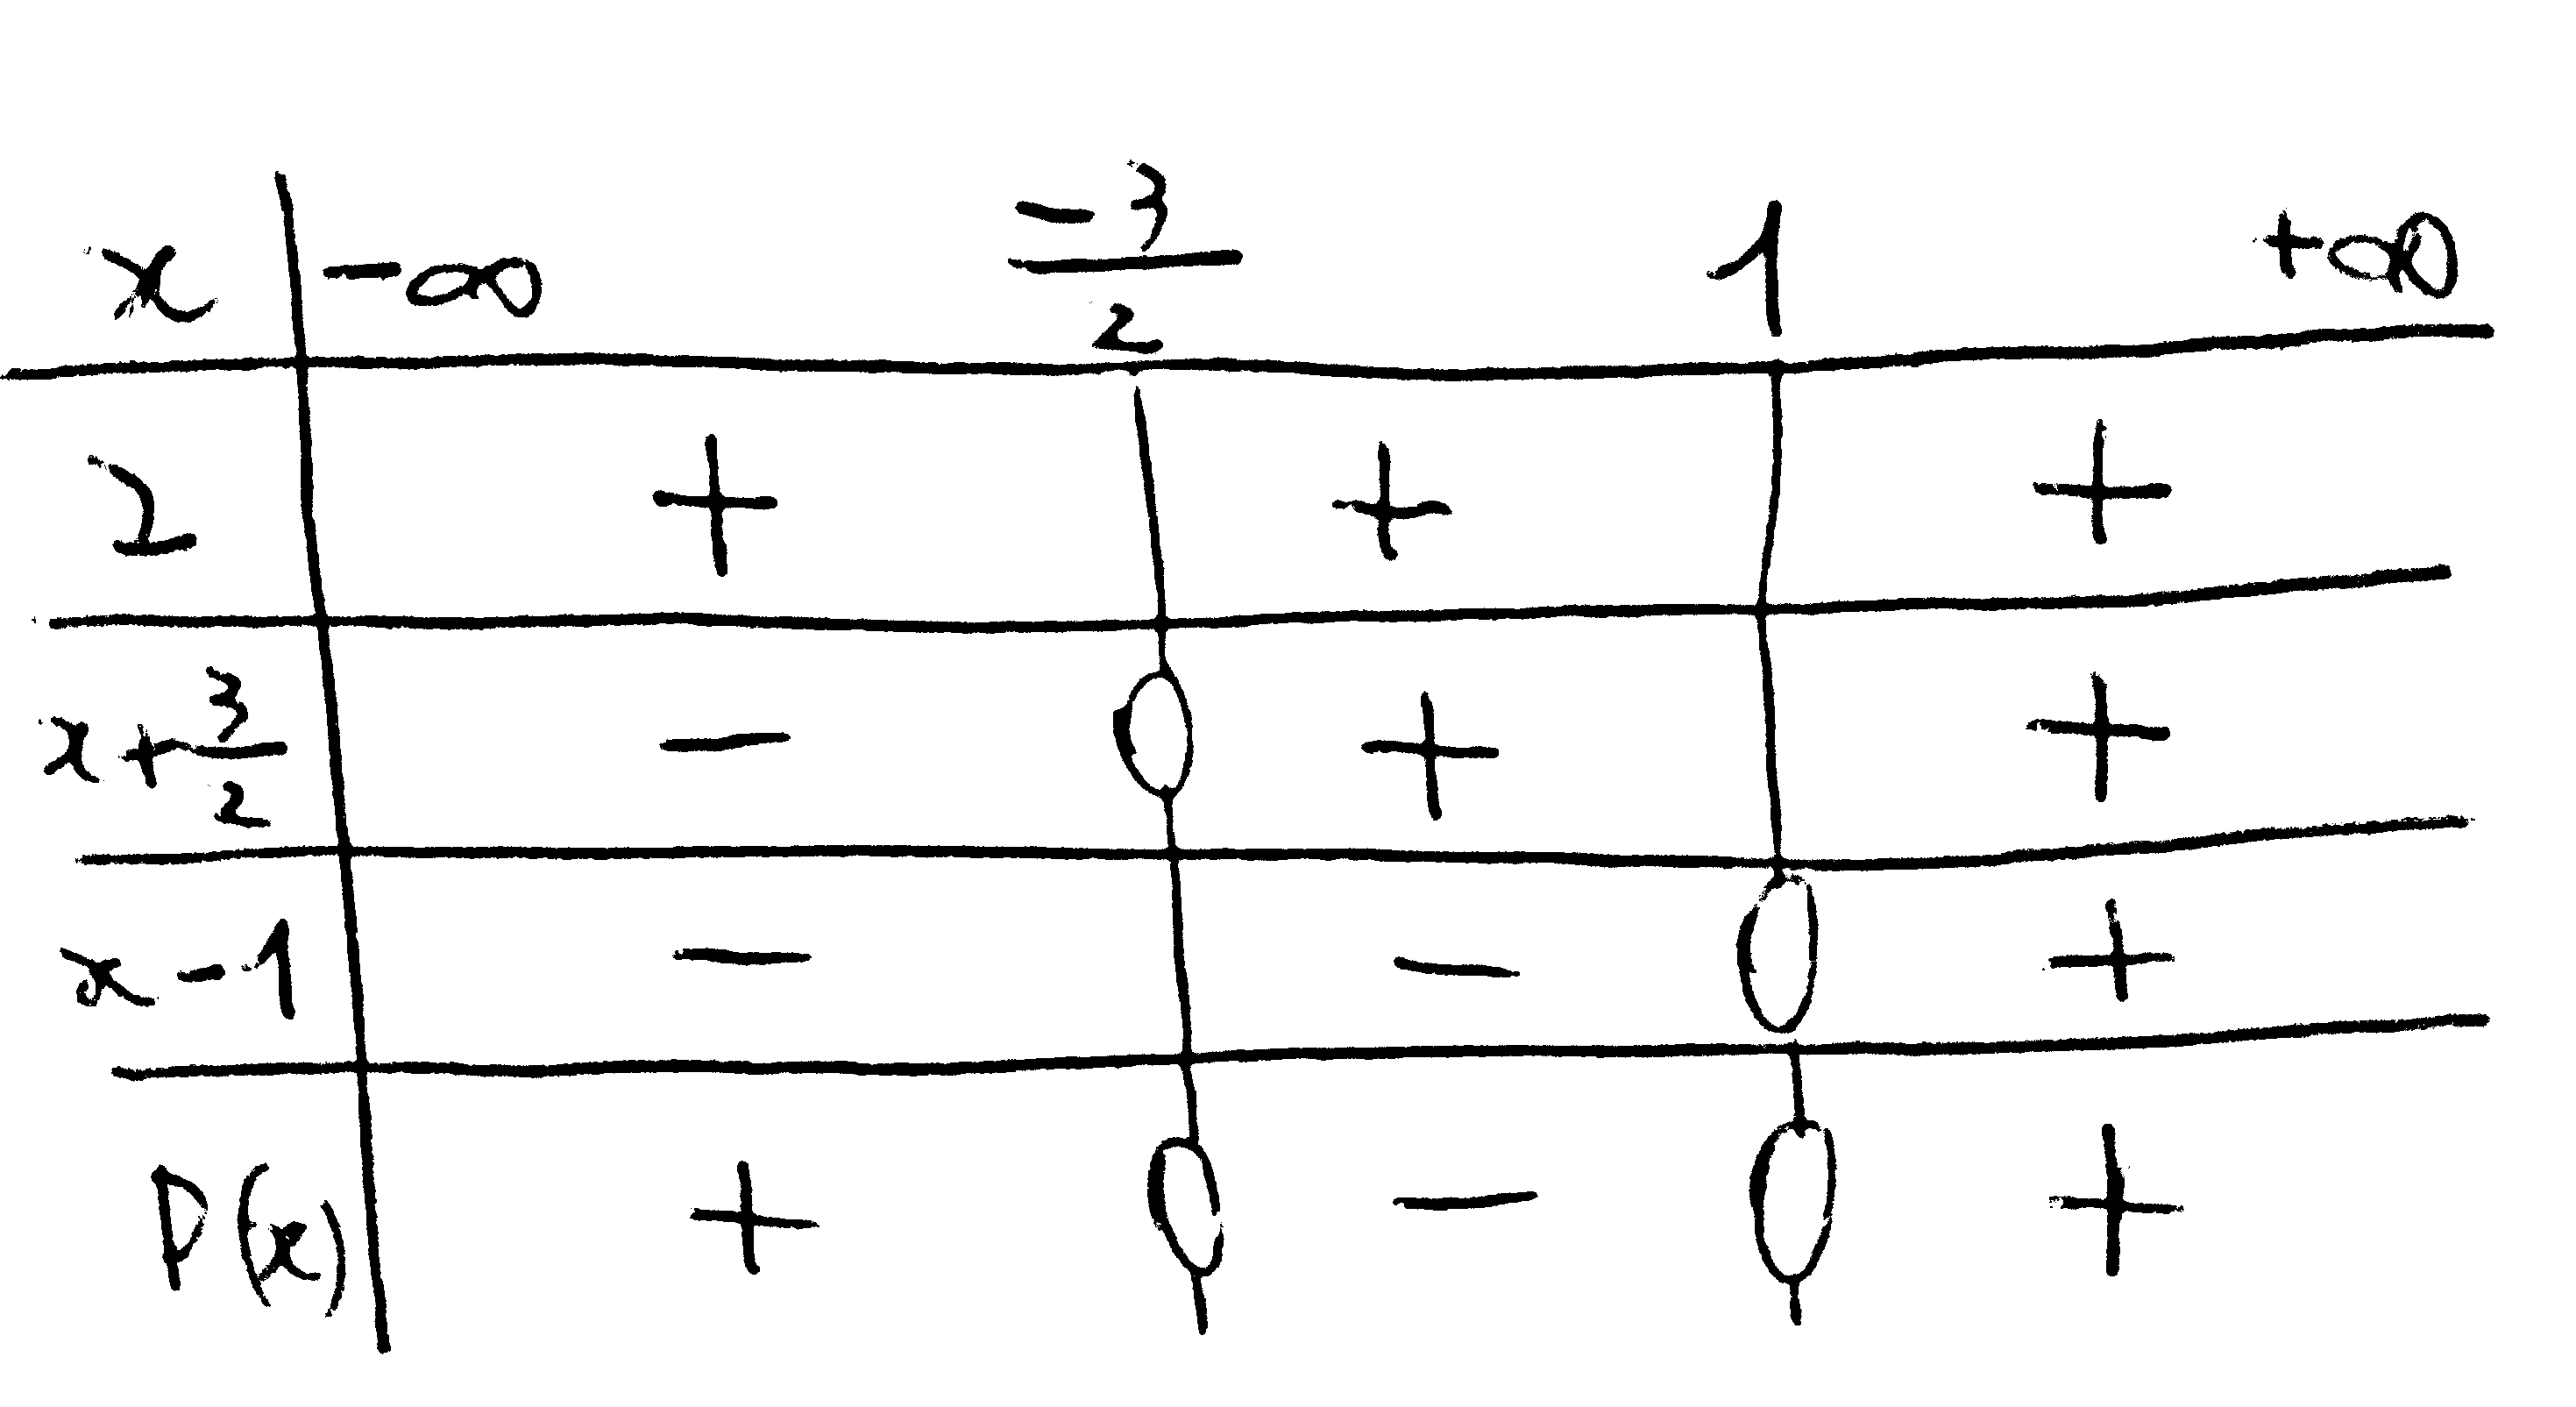 x -∞ -3/2 1 +∞
2 + + +
x+3/2 - 0 + +
x-1 - - 0 +
P(x) + 0 - 0 +